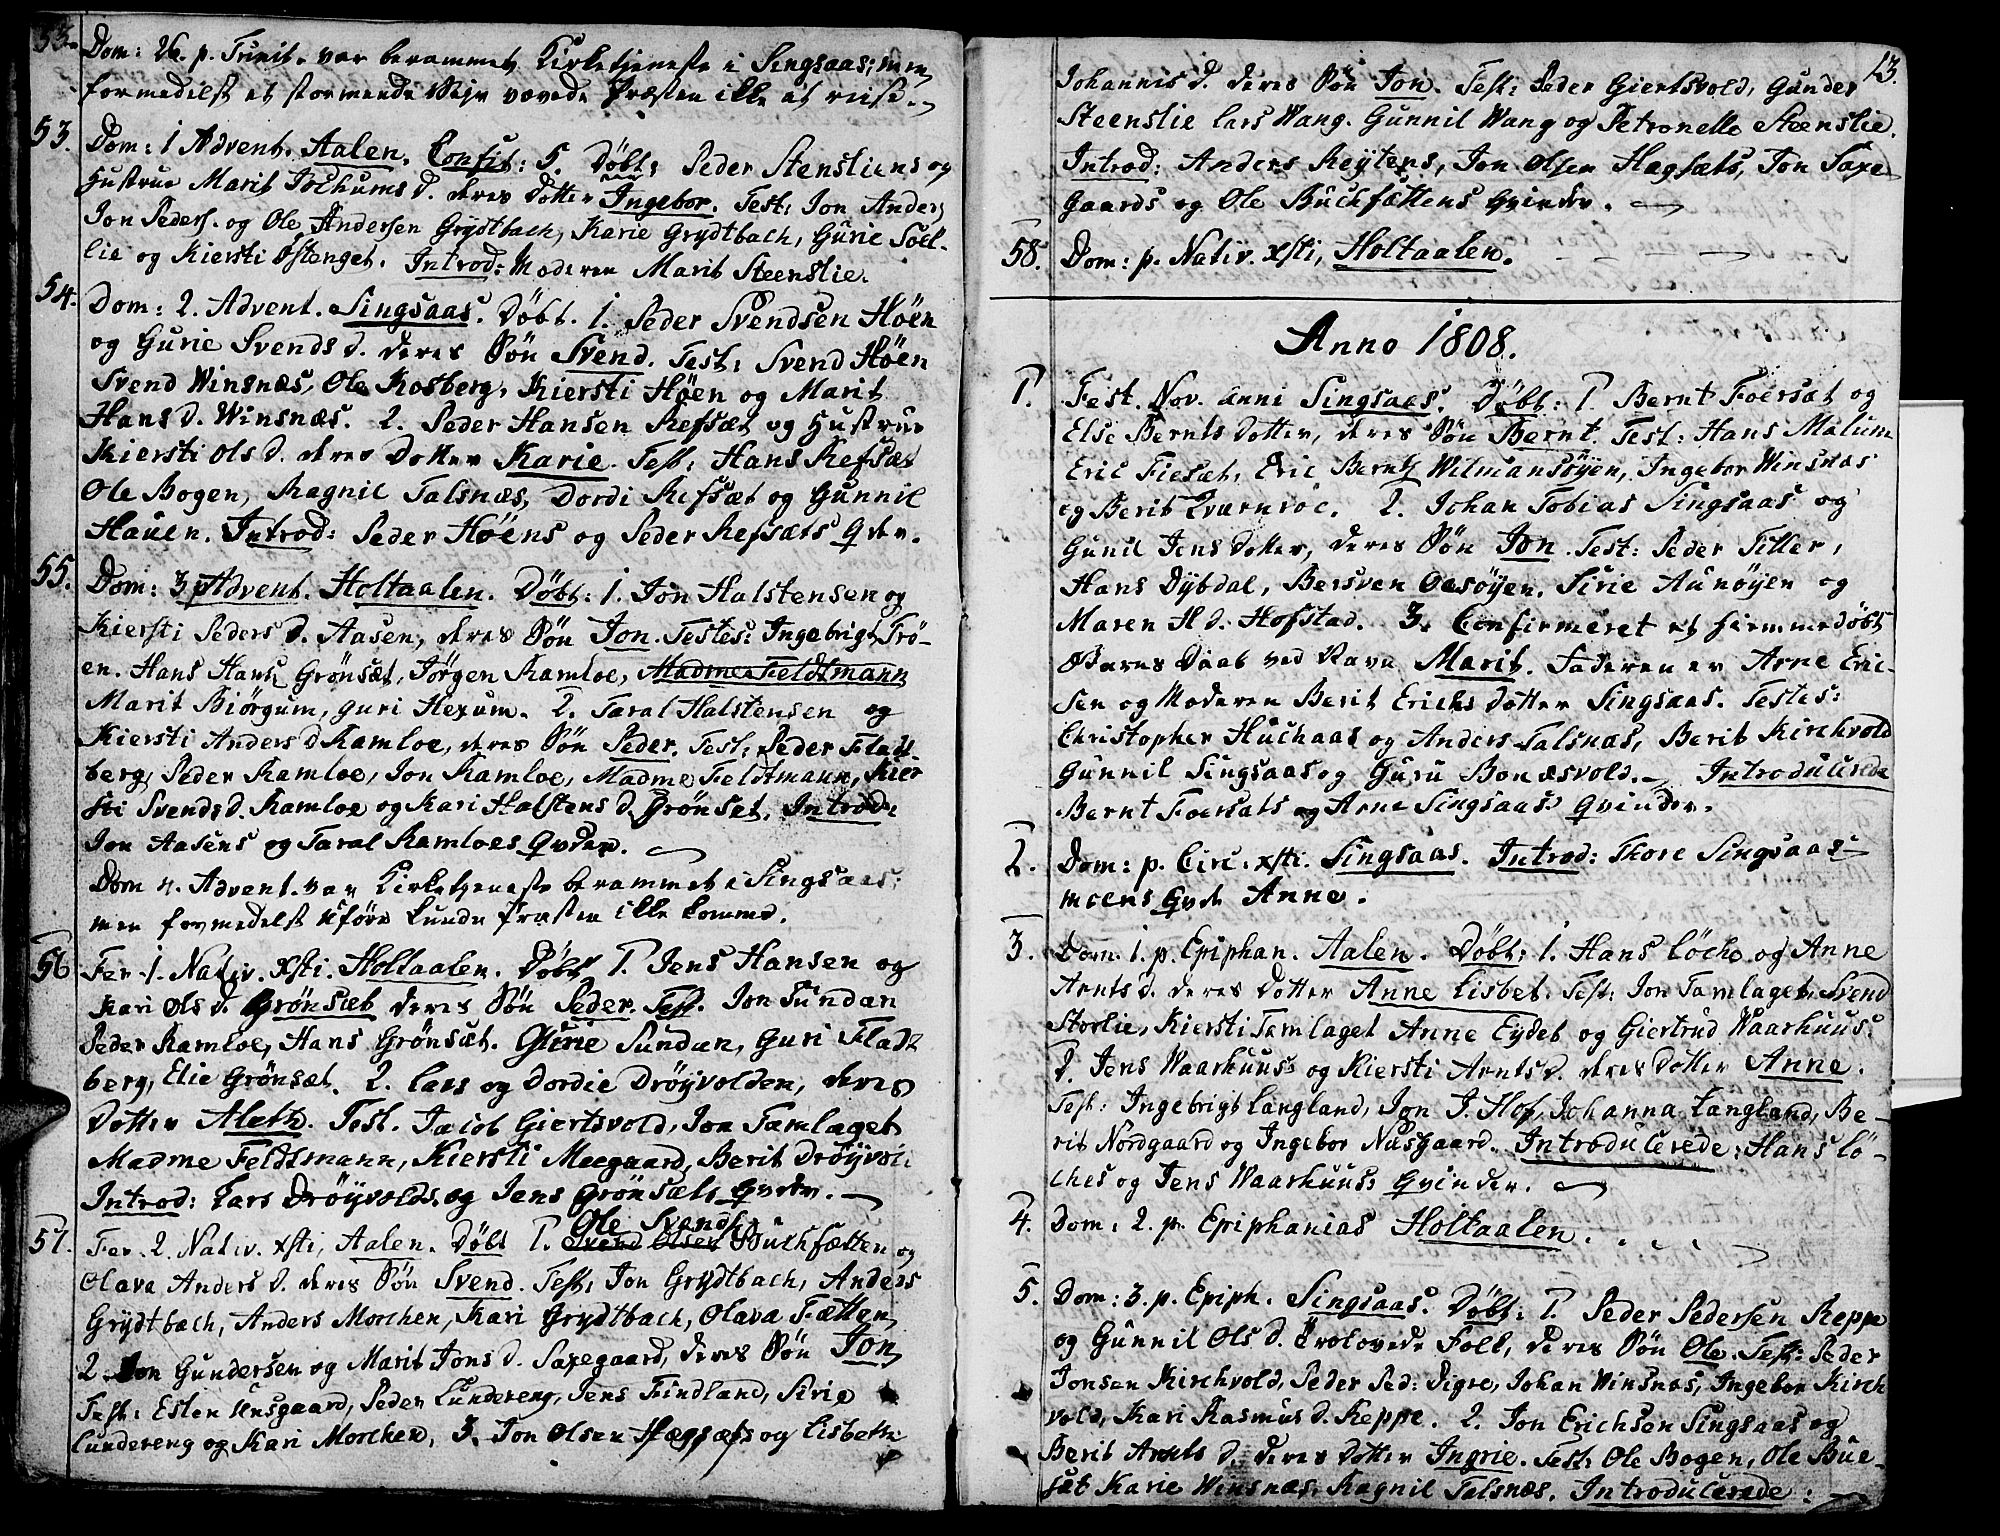 53.
Dom: 26. p. Trinit. var berammet Kirketjeneste i Singsaas; men
formedelst et stormende Vejr vovede Præsten ikke at reise.
53. Dom: 1 Advent. Aalen. Confit: 5. Döbt: Peder Stensliens og
Hustrue Marit Jochums D. deres Dotter Ingebor. Test: Jon Anders
Jon Peders. og Ole Andersen Grydtbach, Karie Grydtbach, Gurie Soel-
lie og Kiersti Østenget. Introd: Moderen Marit Steenslie.
54. Dom: 2. Advent. Singsaas. Döbt. 1. Peder Svendsen Höen
og Gurie Svends D. deres Sön Svend. Test: Svend Höen
Svend Winsnæs, Ole Kosberg, Kiersti Höen og Marit
Hans D. Winsnæs. 2. Peder Hansen Refsæt og Hustrue
Kiersti Ols D. deres Dotter Karie. Test: Hans Refsæt
Ole Bogen, Ragnil Talsnæs, Dordi Refsæt og Gunnil
Hauen. Introd: Peder Höens og Peder Refsæts Qvdr.
55. Dom: 3 Advent. Holtaalen. Döbt: 1. Jon Halstensen og
Kiersti Peders D. Aasen, deres Sön Jon. Testes: Ingebrigt Trö-
en. Hans Hans: Grönsæt, Jörgen Ramloe, Madme Feldtmann
Marit Biörgum, Guri Hexum. 2. Taral Halstensen og
Kiersti Anders D Ramloe, deres Sön Peder. Test: Peder Fladt-
berg, Peder Ramloe, Jon Ramloe, Madme Feldtmann, Kier
sti Svends D. Ramloe og Kari Halstens D. Grönset. Introd:
Jon Aasens og Taral Ramloes Qvder.
Dom 4. Advent. var Kirketjeneste berammet i Singsaas;
men formedelst Uföre kunde Præsten ikke komme.
56 Fer. 1. Nativ. Xsti. Holtaalen. Döbt 1. Jens Hansen og
Kari Ols D. Grönsæt deres Sön Peder. Test. Jon Sundan
Peder Ramloe, Hans Grönsæt. Gurie Sundan, Guri Fladt
berg, Elie Grönsæt. 2. Lars og Dordie Dröyvolden, deres
Dotter Aleth. Test. Jacob Giertsvold, Jon Tamlaget
Madme Feldtmann, Kiersti Meegaard, Berit Dröyvol
Introd: Lars Dröyvolds og Jens Grönsæts Qvder.
Ole Svends
57. Fer. 2. Nativ. Xsti, Aalen. Döbt 1. Svend Olsen Buchfætten og
Olava Anders D. deres Sön Svend. Test: Jon Grydtbach, Anders
Grydtbach, Anders Morchen, Kari Grydtbach, Olava Fætten,
2. Jon Gundersen og Marit Jons D. Saxegaard, deres Sön Jon,
Test: Esten Unsgaard, Peder Lundereng, Jens Findland, Sirie
Lundereng og Kari Morchen. 3. Jon Olsen Hægsæts og Lisbeth
13.
Johannis D. deres Sön Jon. Test: Peder Giertsvold, Gunder
Steenslie Lars Wang. Gunnil Wang og Petronelle Steenslie.
Introd: Anders Reytens, Jon Olsen Hagsæts, Jon Saxe-
gaards og Ole Buchfættens Qvinder.
58. Dom: p. Nativ. Xsti, Holtaalen.
Anno 1808.
1. Fest. Nov. anni Singsaas. Döbt: 1. Bernt Foersæt og
Else Bernts Dotter, deres Sön Bernt. Test: Hans Malum
Eric Fiesæt, Eric Berntz Wilmansöyen, Ingebor Winsnæs
og Berit Kværnroe. 2. Johan Tobias Singsaas og
Gunil Jens Dotter, deres Sön Jon. Test: Peder Titter,
Hans Dybdal, Bersven Oesöyen. Sirie Aunöyen og
Maren H D. Hofstad. 3. Confirmeret et hiemmedöbt
Barns Daab ved Navn Marit. Faderen er Arne Eric-
sen og Moderen Berit Erichs Dotter Singsaas. Testes:
Christopher Huchaas og Anders Talsnæs, Berit Kirchvold
Gunnil Singsaas og Guru Bonæsvold. Introducerede
Bernt Foersæts og Arne Singsaas Qvinder.
2. Dom: p. Circ: Xsti. Singsaas. Introd: Thore Singsaas-
moens Qvde Anne.
3. Dom. 1. p. Epiphan. Aalen. Döbt: 1. Hans Löche og Anne
Arnts D. deres Dotter Anne Lisbet. Test: Jon Tamlaget, Svend
Storlie, Kiersti Tamlaget Anne Eydet og Giertrud Waarhuus.
2. Jens Waarhuus og Kiersti Arnts D. deres Dotter Anne.
Test: Ingebrigt Langland, Jon J. Hof, Johanna Langland, Be-
rit Nordgaard og Ingebor Nusgaard. Introducerede: Hans Lö-
ches og Jens Waarhuus: Qvinder.
4. Dom: 2. p. Epiphanias Holtaalen.
5. Dom: 3. p. Epiph. Singsaas. Döbt: 1. Peder Pedersen Reppe
og Gunnil Ols D. Trolovede Folk, deres Sön Ole. Test: Peder
Jonsen Kirchvold, Peder Ped: Digre, Johan Winsnæs, Ingebor Kirch
vold, Kari Rasmus D. Reppe. 2. Jon Erichsen Singsaas og
Berit Arnts D. deres Dotter Ingrie. Test: Ole Bogen, Ole Bue-
sæt Karie Winsnæs, Ragnil Talsnæs. Introducerede: